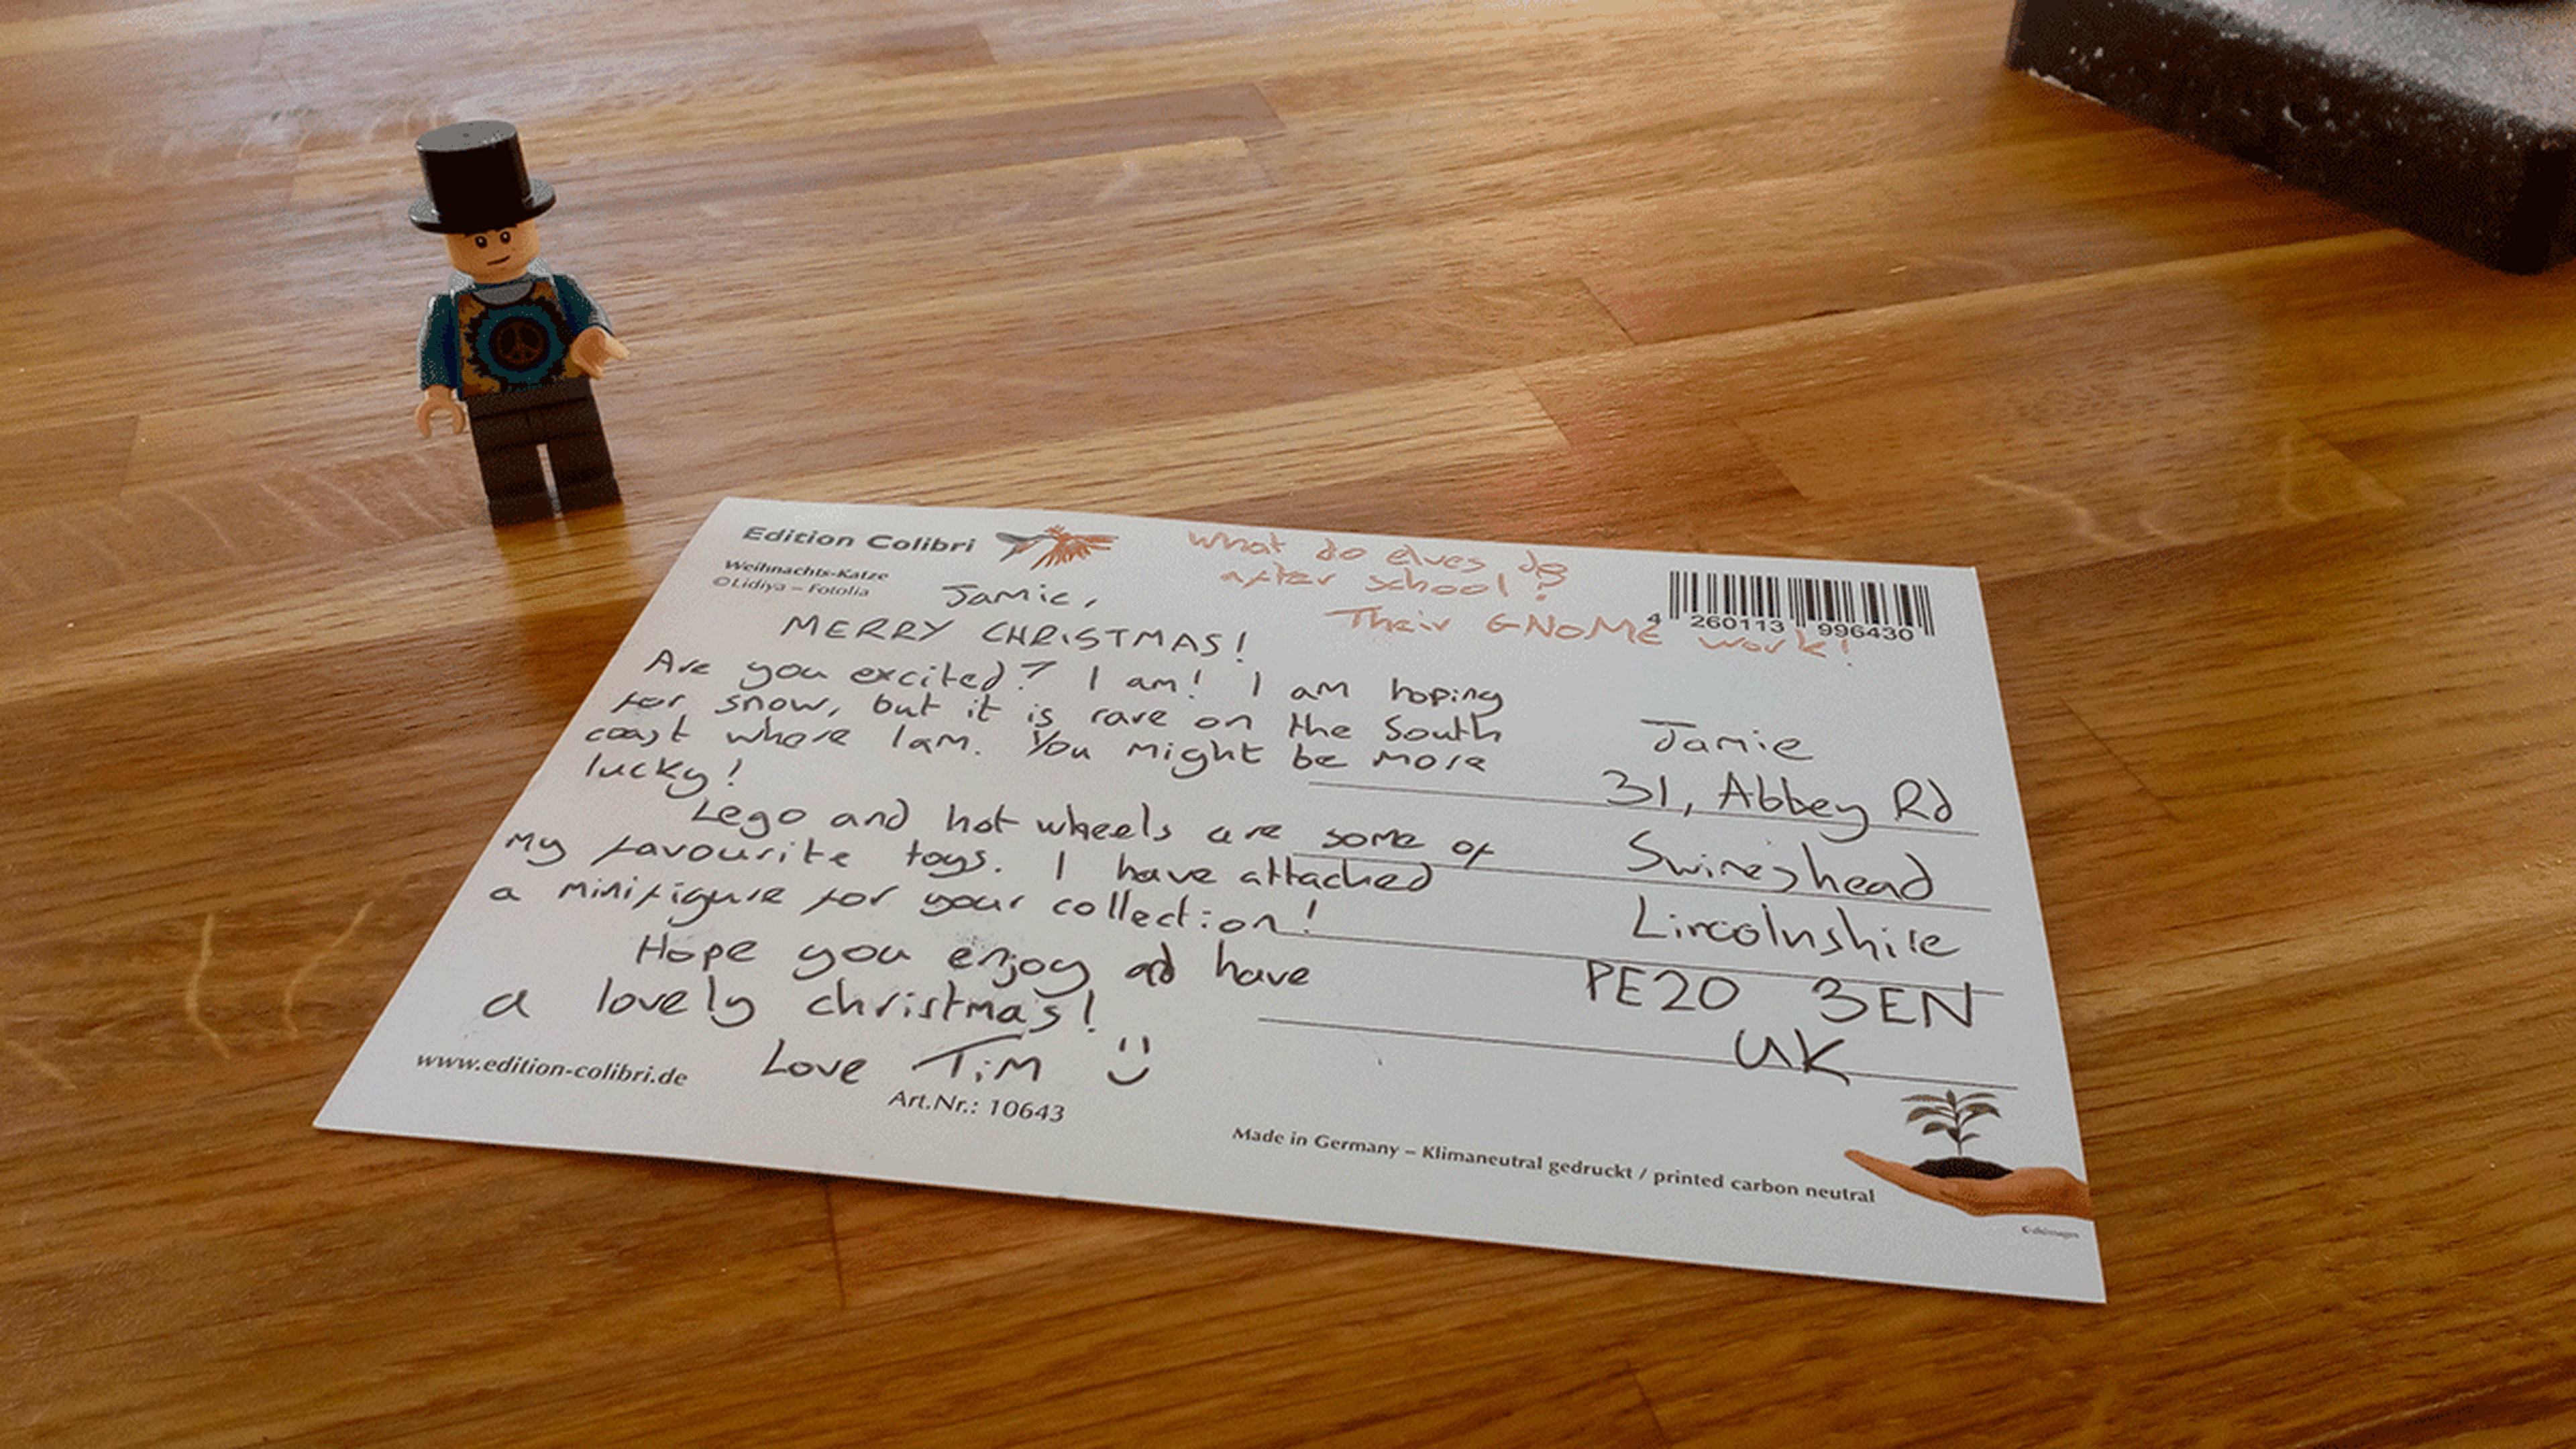 Edition Colibri
Weihnachts-Katze
©Lidiya – Fotolia
What do elves do
after school?
Their GNOME work!
4 260113 996430
Jamie,
MERRY CHRISTMAS!
Are you excited? I am! I am hoping
for snow, but it is rare on the South
coast where I am. You might be more
lucky!
Lego and hot wheels are some of
my favourite toys. I have attached
a minifigure for your collection!
Hope you enjoy and have
a lovely christmas!
Love Tim
www.edition-colibri.de
Art.Nr.: 10643
Jamie
31, Abbey Rd
Swineshead
Lincolnshire
PE20 3EN
UK
Made in Germany – Klimaneutral gedruckt / printed carbon neutral